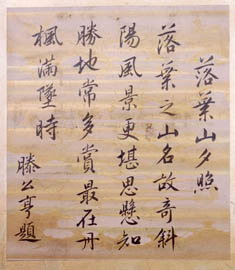 落葉山夕照
落葉之山名故奇斜
陽風景更堪思懸知
勝地常多賞最在丹
楓滿墜時
滕公亨題